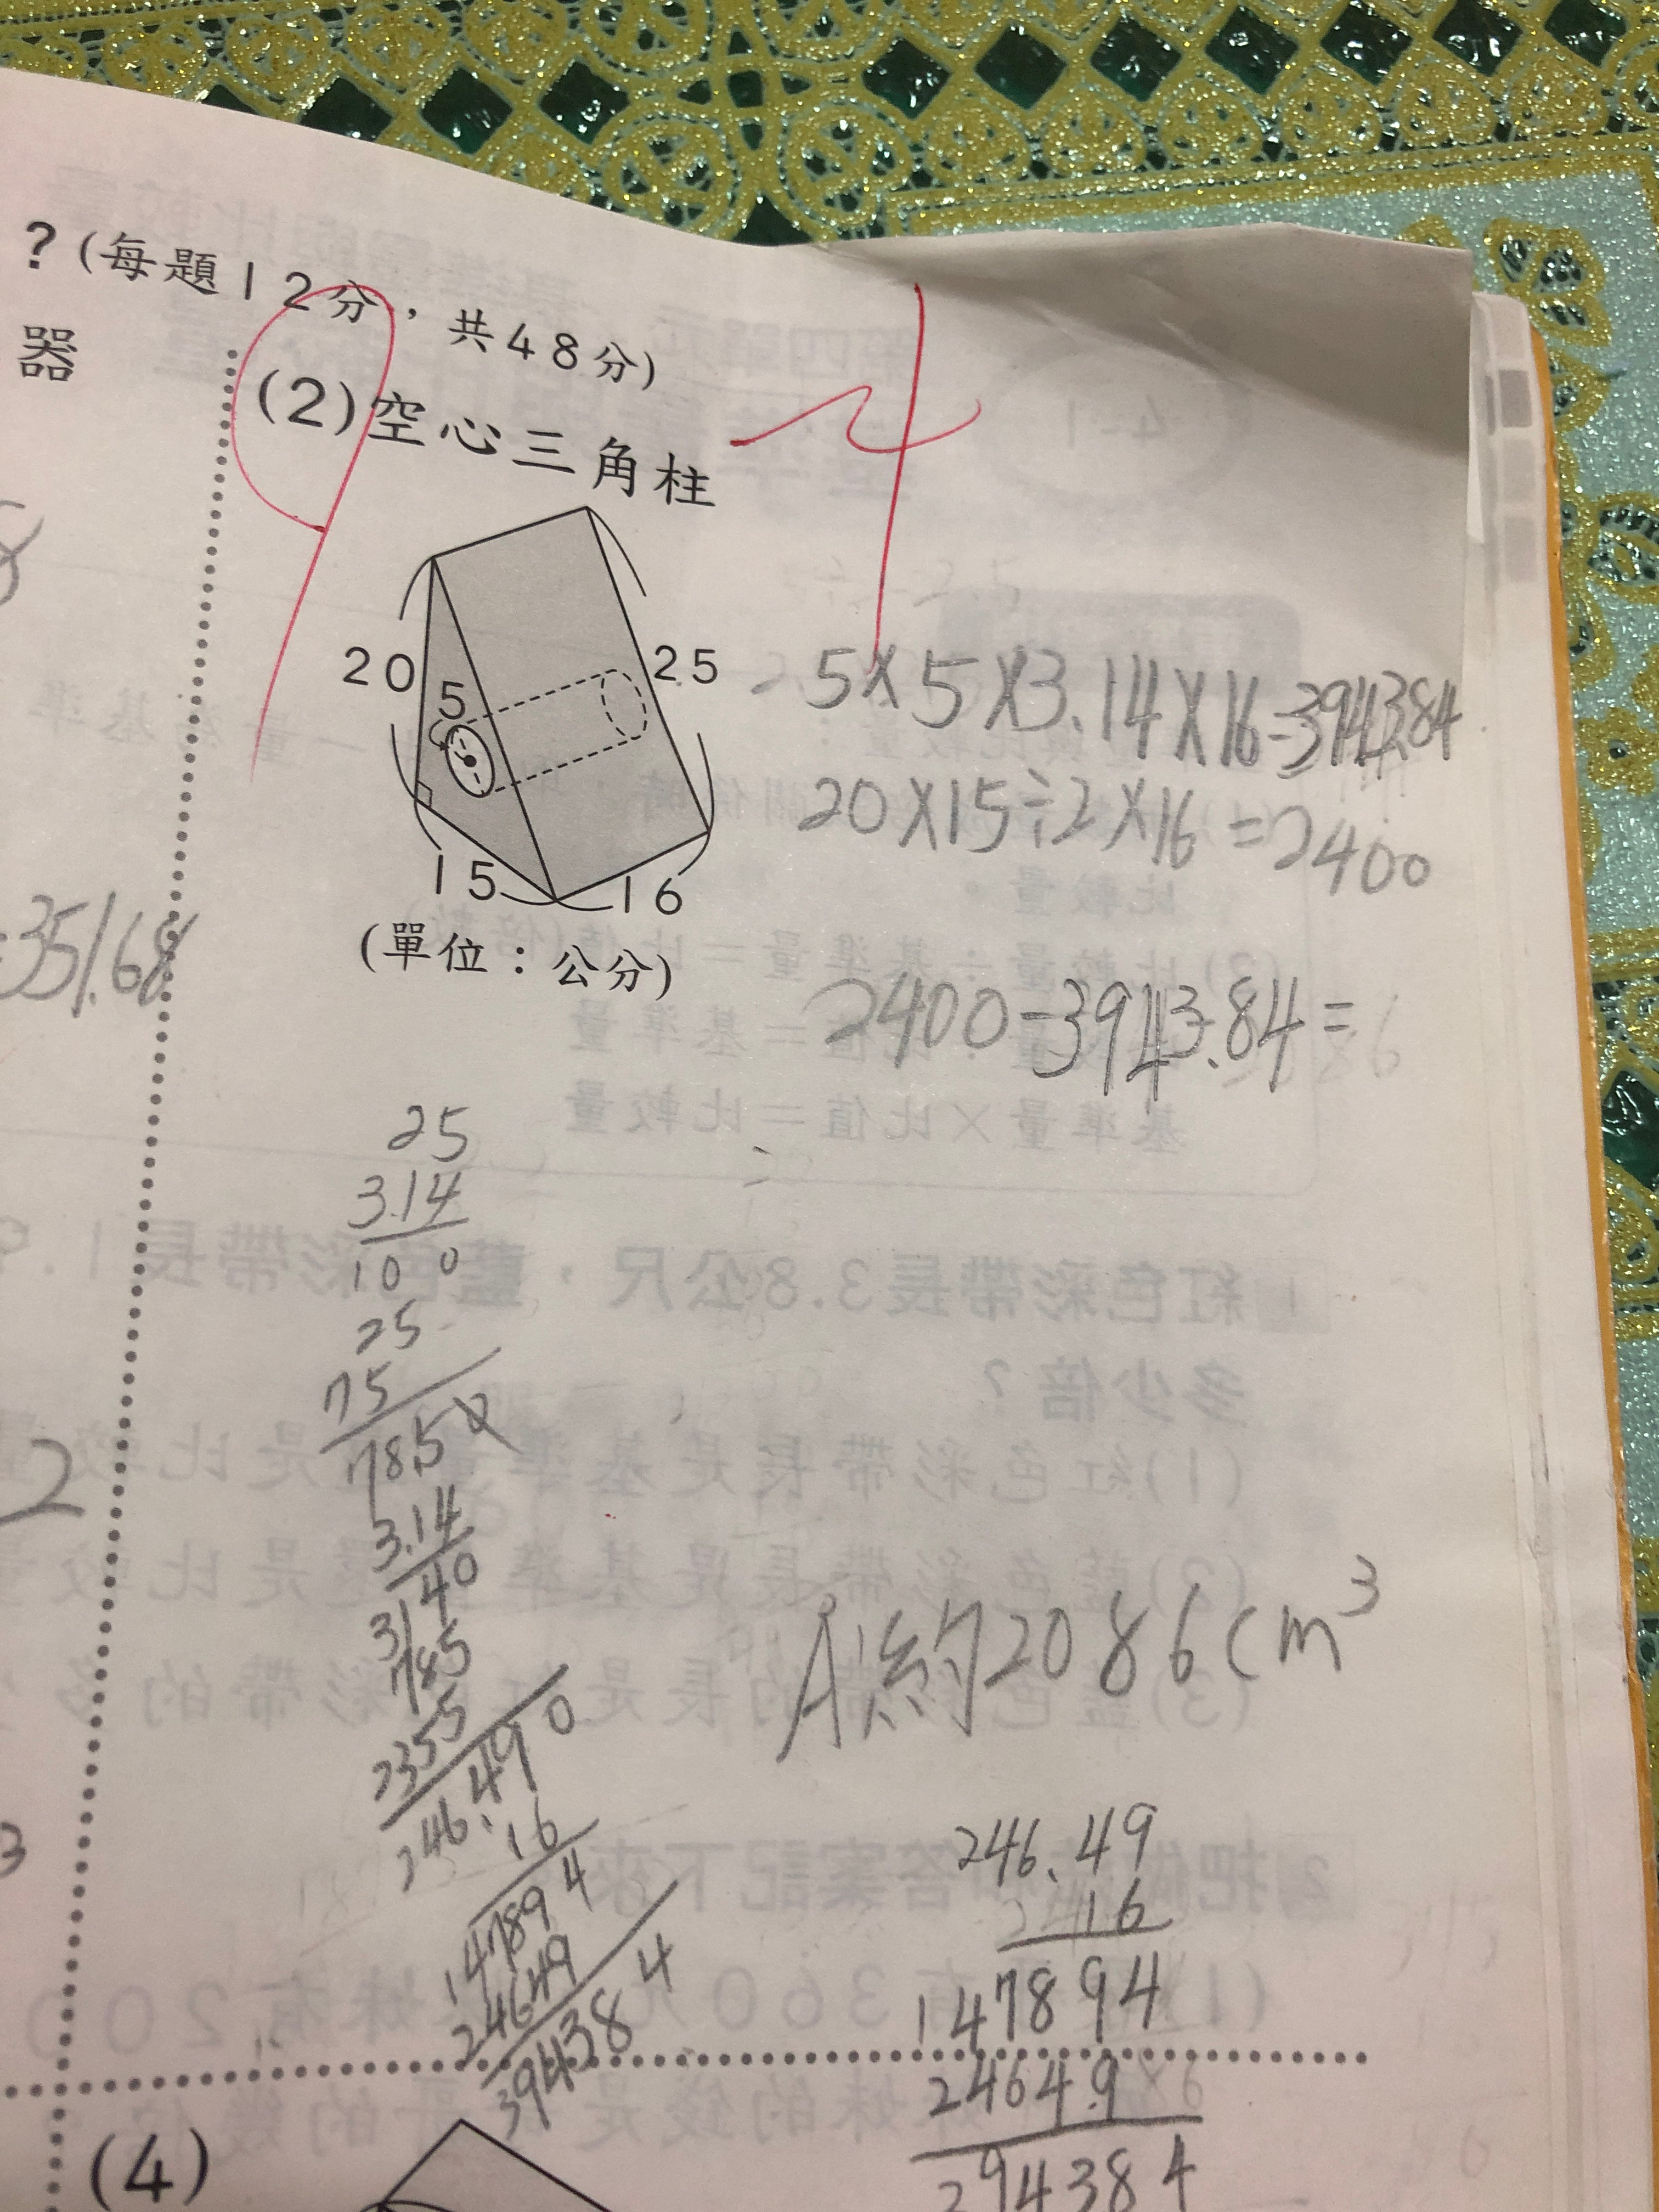 ?(每題12分,共48分)
器
(2)空心三角柱
20
5
25
15
16
(單位：公分)
5×5×3.14×16=3943.84
20×15÷2×16=2400
2400-3943.84=
=351.68
25
3.14
100
25
75
78.50
3.14
40
314
785
2355
246.490
16
147894
24649
394384
2
A:約2086cm³
246.49
16
147894
24649
294384
3
(4)